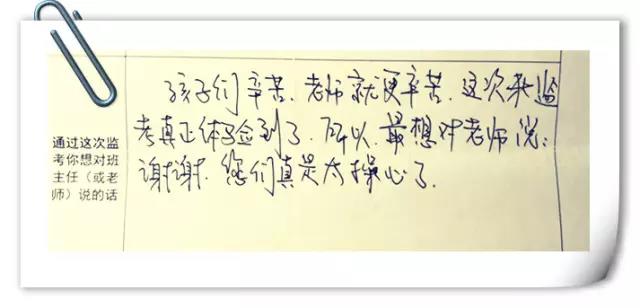 通过这次监
考你想对班
主任（或老
师）说的话
孩子们辛苦、老师就更辛苦、这次来监
考真正体验到了、所以、最想对老师说：
谢谢、您们真是太操心了、